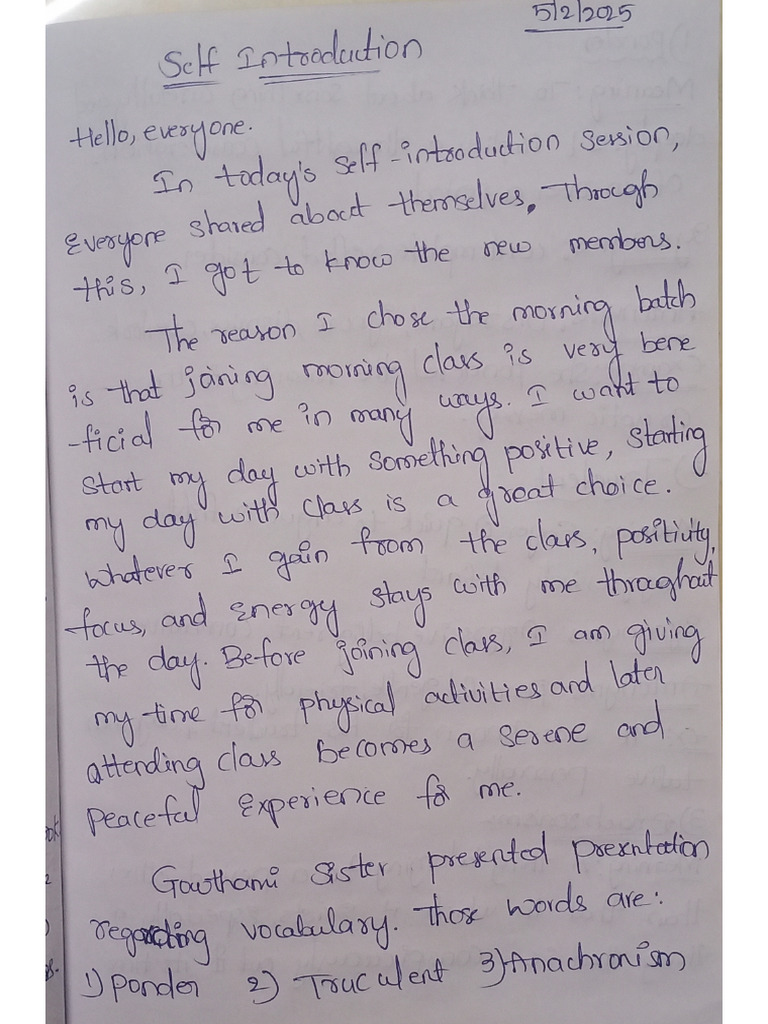 5/2/2025
Self Introduction
Hello, everyone.
In today's self-introduction session,
everyone shared about themselves. Through
this, I got to know the new members.
The reason I chose the morning batch
is that joining morning class is very bene
-ficial for me in many ways. I want to
start my day with something positive, starting
my day with class is a great choice.
Whatever I gain from the class, positivity,
focus, and energy stays with me throughout
the day. Before joining class, I am giving
my time for physical activities and later
attending class becomes a serene and
peaceful experience for me.
Gowthami sister presented presentation
regarding vocabulary. Those words are:
1) Ponder 2) Truculent 3) Anachronism